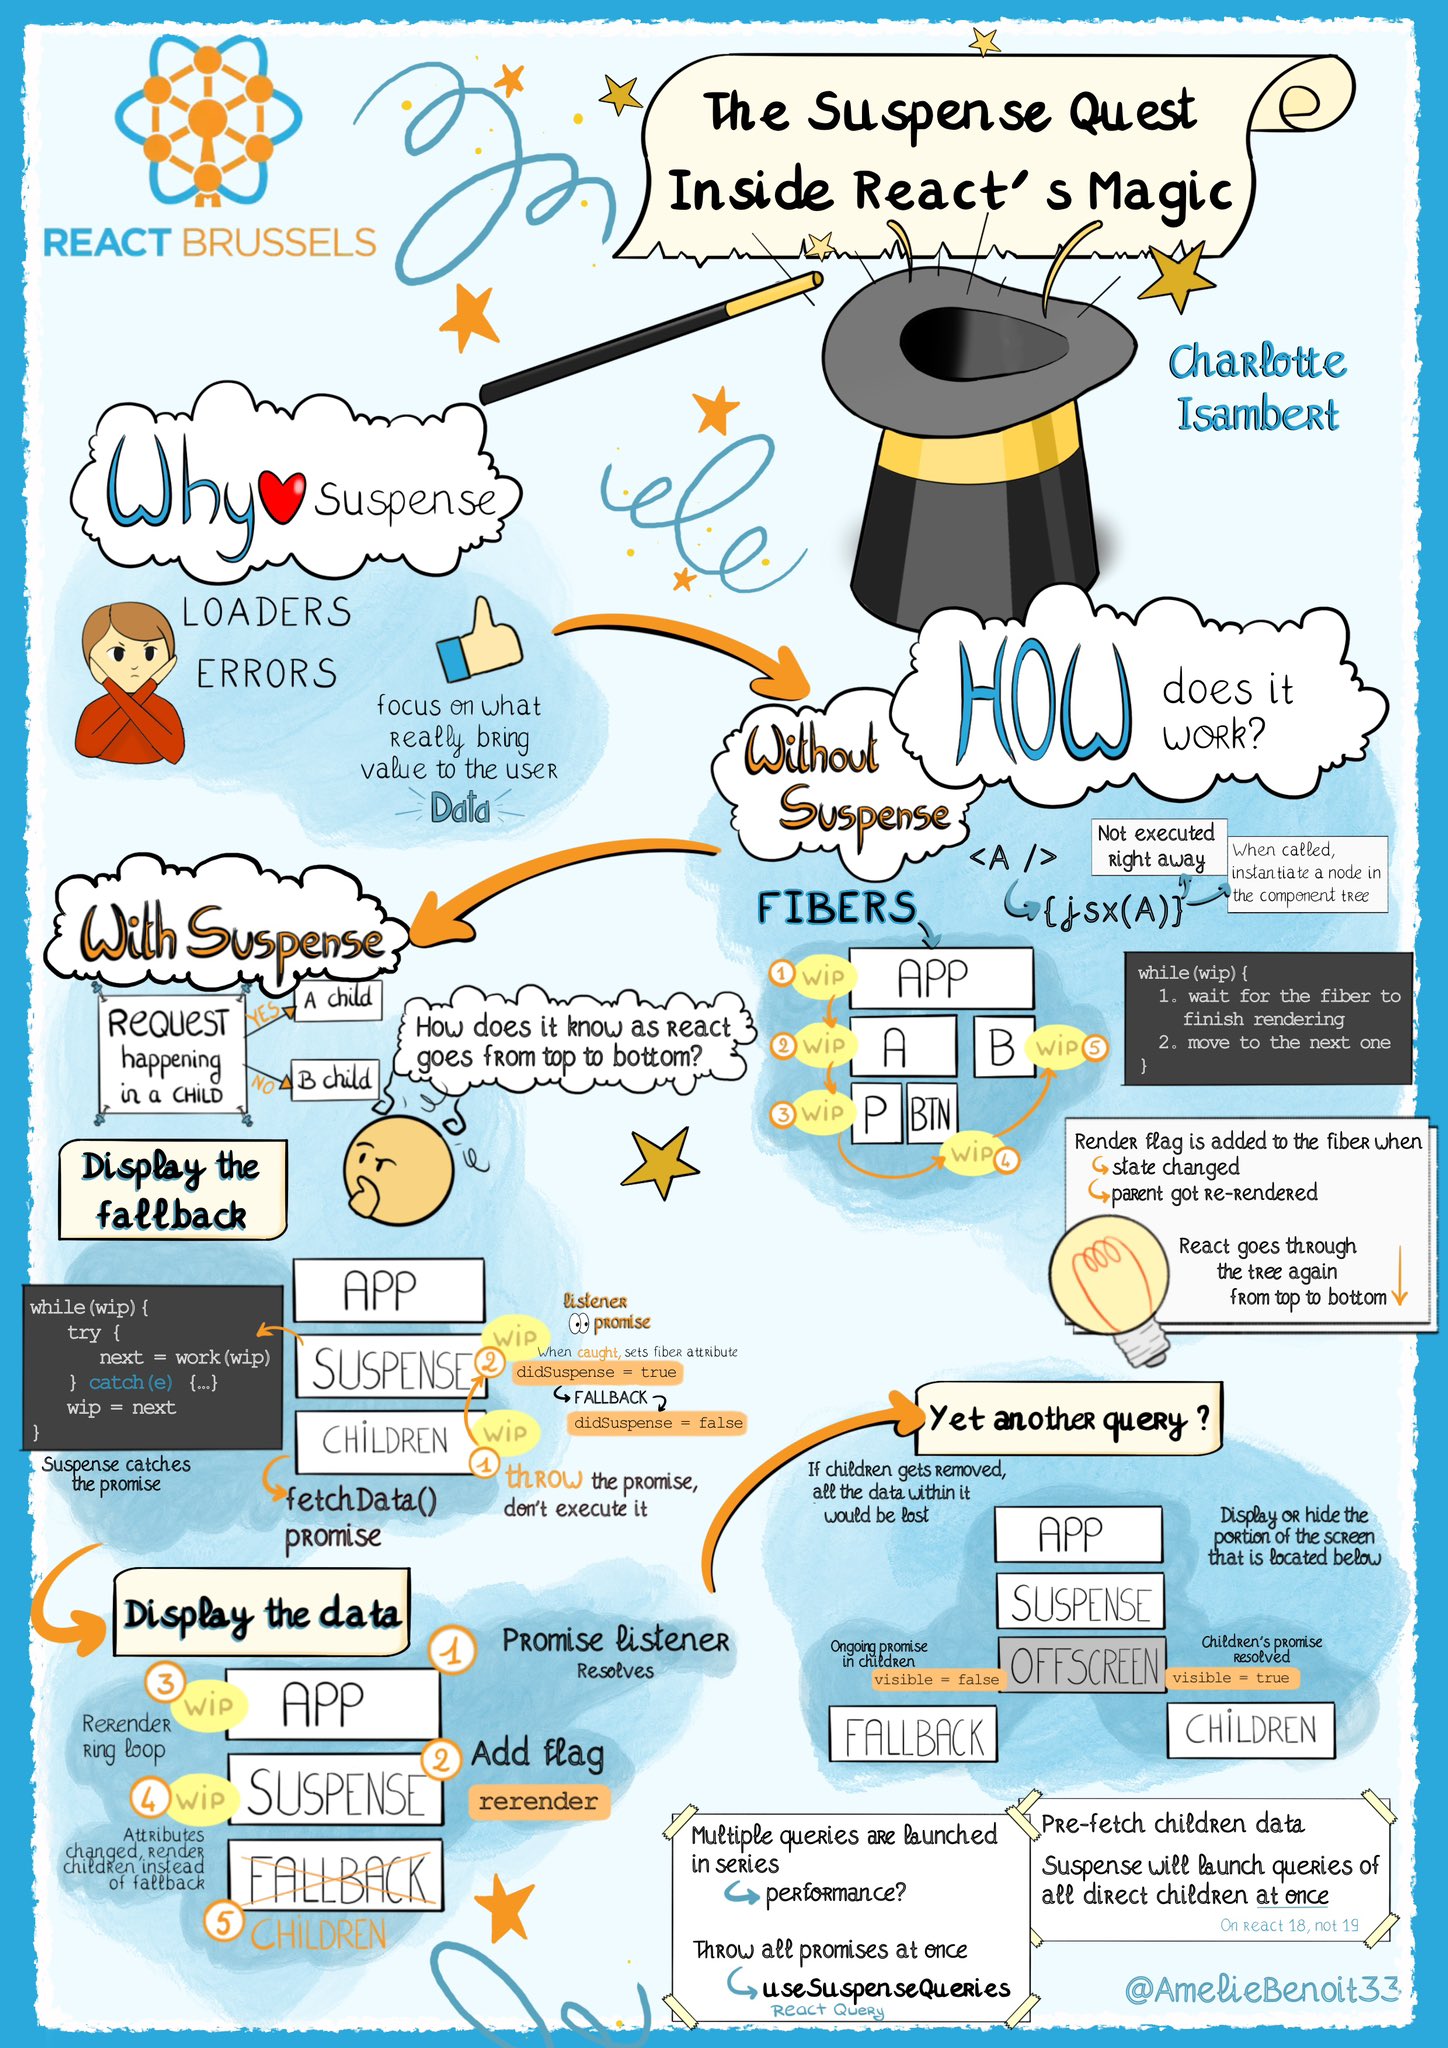 The Suspense Quest
Inside React's Magic
REACT BRUSSELS
Charlotte
Isambert
Why Suspense
LOADERS
ERRORS
focus on what
really bring
value to the user
Data
HOW does it
work?
Without
Suspense
<A />
{jsx(A)}
Not executed
right away
When called,
instantiate a node in
the component tree
FIBERS
1 WIP APP
2 WIP A B WIP 5
3 WIP P BTN
WIP 4
while(wip){
1. wait for the fiber to
finish rendering
2. move to the next one
}
Render flag is added to the fiber when
state changed
parent got re-rendered
React goes through
the tree again
from top to bottom
With Suspense
REQUEST
happening
in a CHILD
YES
A child
NO
B child
How does it know as react
goes from top to bottom?
Display the
fallback
while(wip){
try {
next = work(wip)
} catch(e) {...}
wip = next
}
Suspense catches
the promise
APP
SUSPENSE
CHILDREN
WIP
2
WIP
1
listener
promise
When caught, sets fiber attribute
didSuspense = true
FALLBACK
didSuspense = false
THROW the promise,
don't execute it
fetchData()
promise
Display the data
1 Promise listener
Resolves
3 WIP APP
Rerender
ring loop
2 Add flag
rerender
4 WIP SUSPENSE
Attributes
changed, render
children instead
of fallback
FALLBACK
5 CHILDREN
Yet another query ?
If children gets removed,
all the data within it
would be lost
APP
Display or hide the
portion of the screen
that is located below
SUSPENSE
Ongoing promise
in children
visible = false
OFFSCREEN
Children's promise
resolved
visible = true
FALLBACK
CHILDREN
Multiple queries are launched
in series
performance?
Throw all promises at once
useSuspenseQueries
React Query
Pre-fetch children data
Suspense will launch queries of
all direct children at once
On React 18, not 19
@AmelieBenoit33